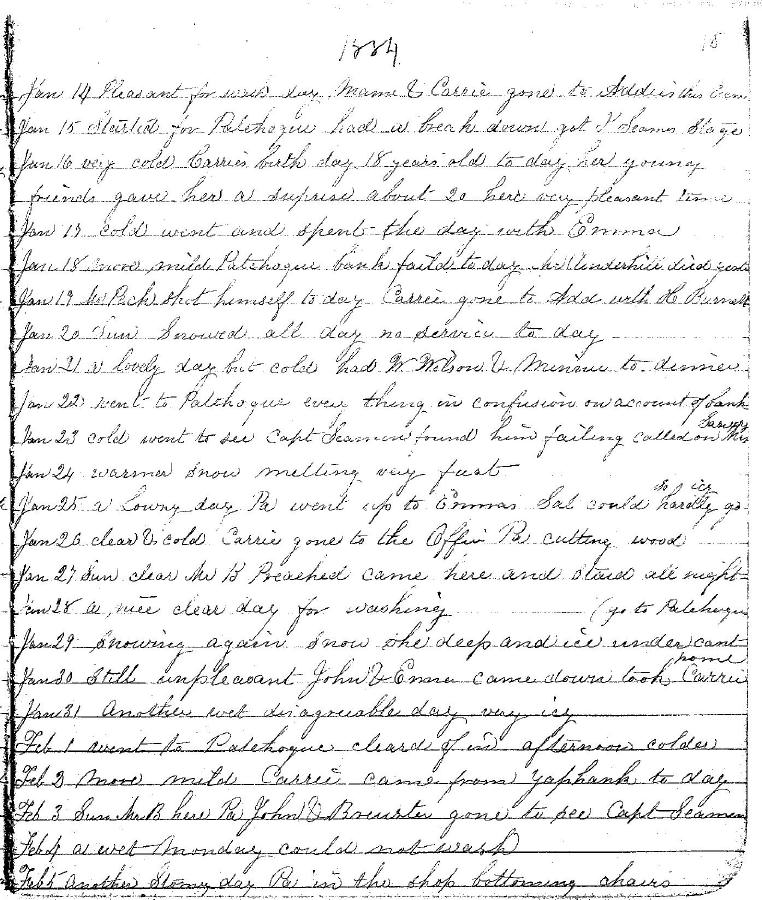 1884
18
Jan 14 Pleasant for wash day Mame & Carrie gone to Addies this Eve
Jan 15 Started for Patchogue had a break down got Seamans Stage
Jan 16 very cold Carries birth day 18 years old to day her young
friends gave her a suprise about 20 here very pleasant time
Jan 17 cold went and spent the day with Emma
Jan 18 more mild Patchogue bank faild to day Mr Underhill died yest
Jan 19 Mr Peck shot himself to day Carrie gone to Add with H Burnett
Jan 20 Sun Snowed all day no service to day
Jan 21 a lovely day but cold had W. Wilson & Minnie to dinner
Jan 22 went to Patchogue every thing in confusion on account of bank
Jan 23 cold went to see Capt Seamen found him failing called on Mrs
Jan 24 warmer snow melting very fast
Jan 25 a Lowry day Pa went up to Emmas Sal could hardly go
so icy
Jan 26 clear & cold Carrie gone to the Offin Pa cutting wood
Jan 27 Sun clear Mr B Preached came here and staid all night
Jan 28 a nice clear day for washing (go to Patchogue
Jan 29 Snowing again snow shedeep and ice under cant
Jan 30 Still unpleasant John & Emma came down took Carrie
home
Jan 31 Another wet disagreable day very icy
Feb 1 went to Patchogue cleard of in afternoon colder
Feb 2 more mild Carrie came from Yaphank to day
Feb 3 Sun Mr B here Pa John & Brewster gone to see Capt Seamen
Feb 4 a wet Monday could not wash
Feb 5 another Stomy day Pa in the shop bottoming chairs